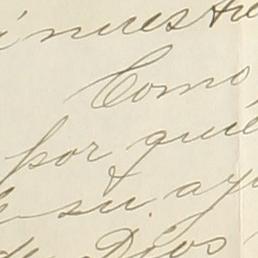 nuestr
Como,
por quie
su ay
de Dios